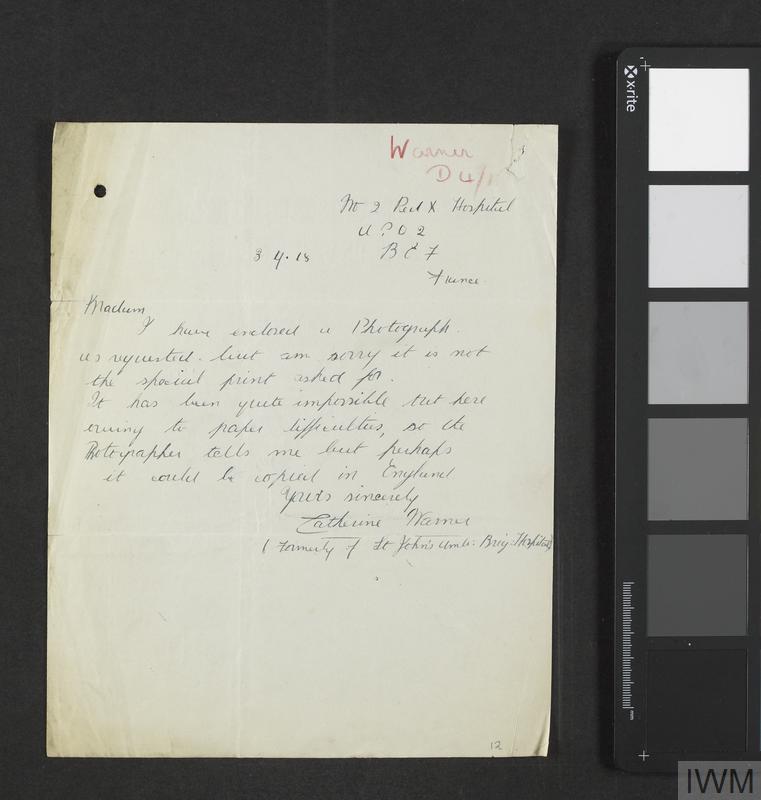 Warner
D 4/1
No 2 Red X Hospital
A P O 2
3.4.18
B E F
France
Madam
I have enclosed a Photograph.
as requested. but am sorry it is not
the special print asked for.
It has been quite impossible out here
owing to paper difficulties, so the
Photographer tells me but perhaps
it could be copied in England
Yours sincerely
Catherine Warner
(Formerly of St John's Amb: Brig: Hospital)
12
x-rite
mm
IWM